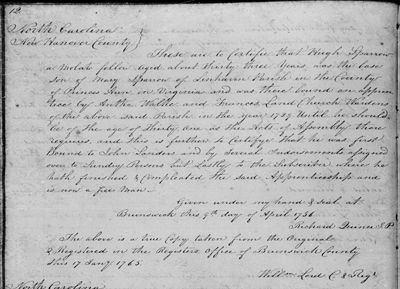 12.
North Carolina
New Hanover County
These are to Certifie that Hugh Sparrow
a Molato fellow aged about thirty three Years was the base
son of Mary Sparrow of Linhaven Parish in the County
of Princes Ann in Virginia and was there bound an appren
tice by Antho Walke and Frances Land Church Wardens
of the above said Parish in the year 1727 Until he should
be of the age of Thirty one as the Acts of Assembly there
requires, and this is further to Certifye that he was first
Bound to John Sanders and by Several Indorsements assigned
over to Sundry Persons but Lastly to the Subscriber where he
hath finished & compleated the said Apprenticeship and
is now a free Man.
Given under my hand & seal at
Brunswick this 9th day of April 1756
Richard Quince J.P.
The above is a true Copy taken from the Original
& Registered in the Registers Office of Brunswick County
this 17 Jany 1765.
Willm Lord C & Regr
North Carolina